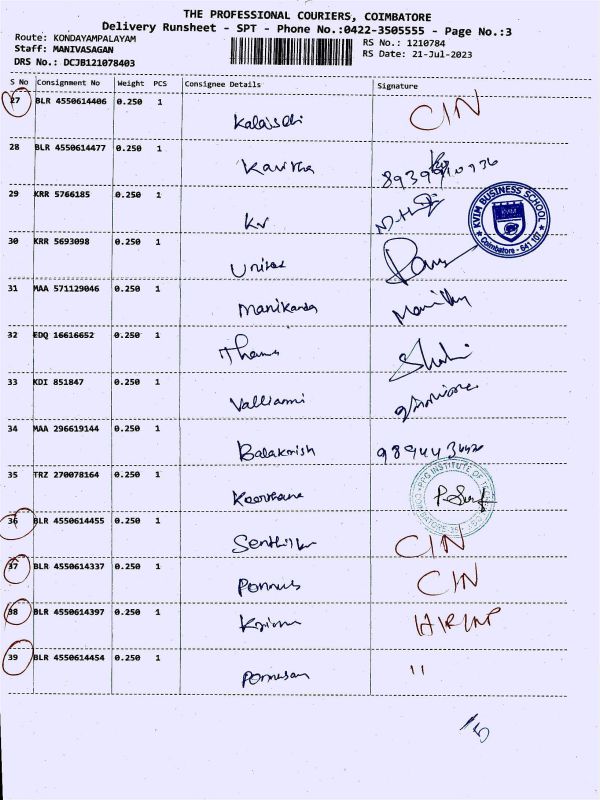 THE PROFESSIONAL COURIERS, COIMBATORE
Delivery Runsheet - SPT - Phone No.:0422-3505555 - Page No.:3
Route: KONDAYAMPALAYAM
RS No.: 1210784
Staff: MANIVASAGAN
RS Date: 21-Jul-2023
DRS No.: DCJB121078403
S No Consignment No Weight PCS Consignee Details Signature
27 BLR 4550614406 0.250 1 CIN
28 BLR 4550614477 0.250 1 Kavitha
29 KRR 5766185 0.250 1 Kv
KVIM BUSINESS SCHOOL
KVIM
Coimbatore - 641 107
30 KRR 5693098 0.250 1
31 MAA 571129046 0.250 1 Manikanda
32 EDQ 16616652 0.250 1
33 KDI 851847 0.250 1 Valliammi
34 MAA 296619144 0.250 1 Balakrish
35 TRZ 270078164 0.250 1
PPG INSTITUTE OF
COIMBATORE-35
36 BLR 4550614455 0.250 1 CIN
37 BLR 4550614337 0.250 1 CIN
38 BLR 4550614397 0.250 1
39 BLR 4550614454 0.250 1 "